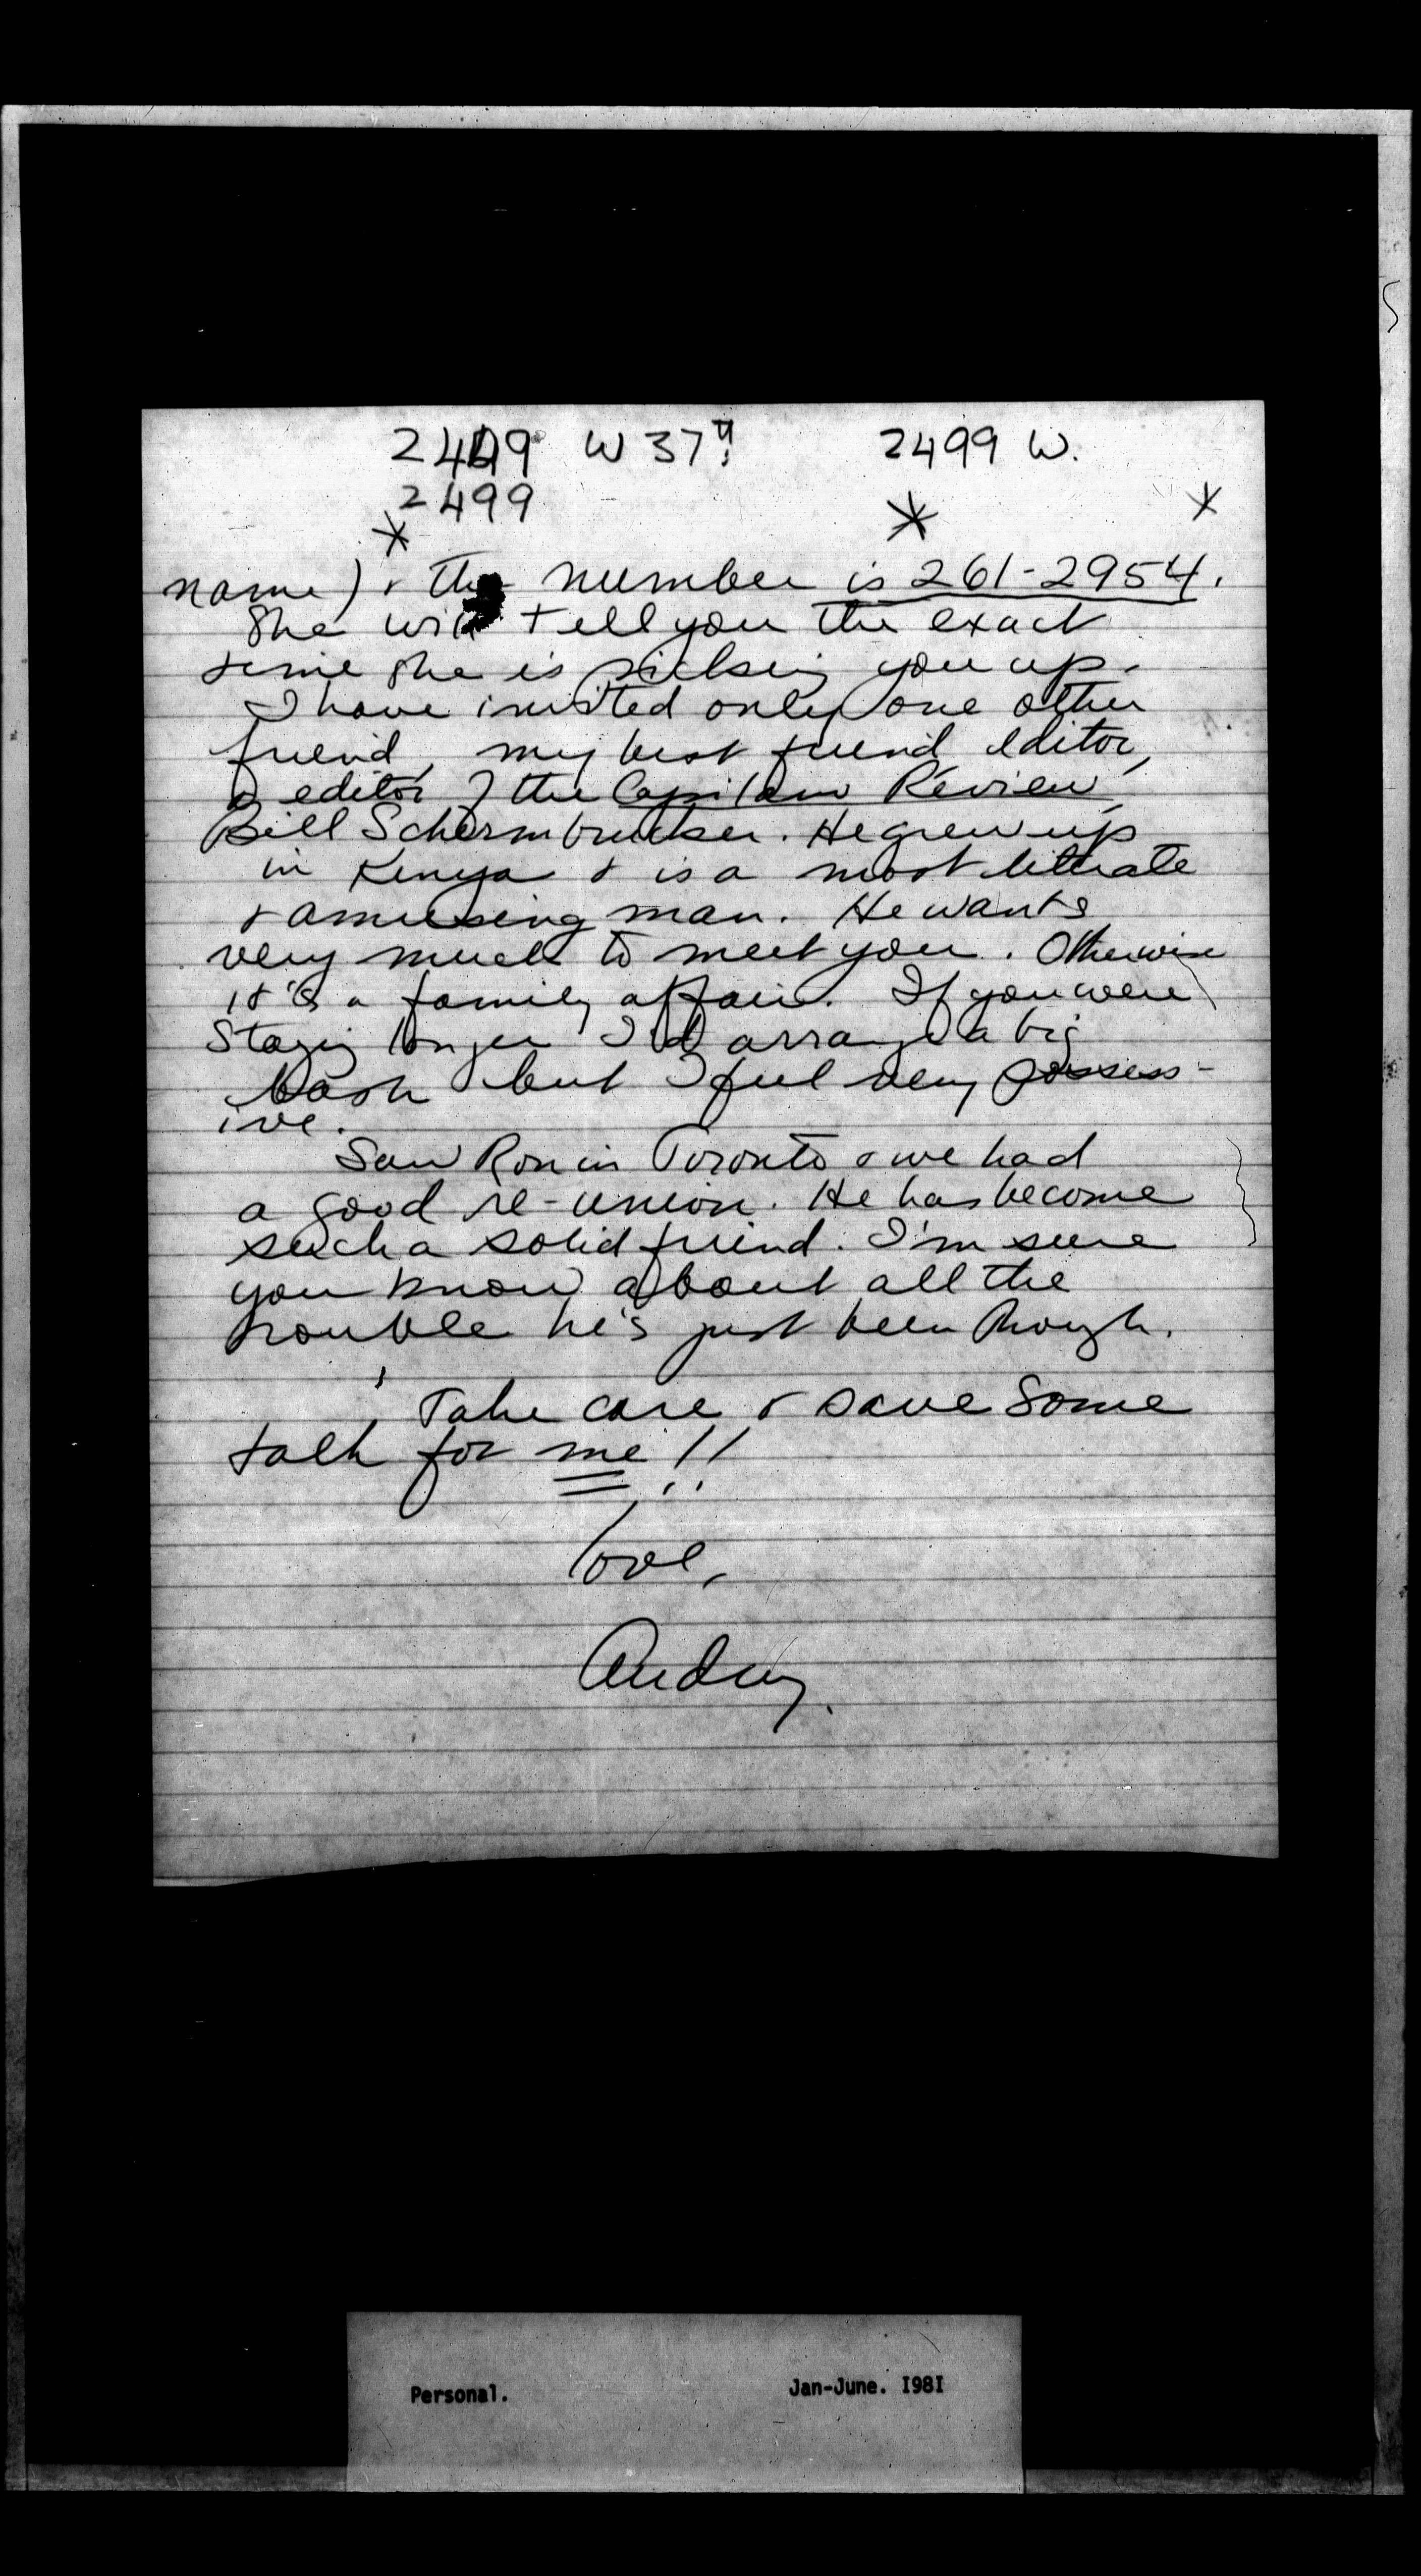 2449 W 37th 2499 W.
2499
* * *
name) & the number is 261-2954.
She will tell you the exact
time she is picking you up.
I have invited only one other
friend, my best friend editor,
editor of the Capilano Review,
Bill Schermbrucker. He grew up
in Kenya & is a most literate
& amusing man. He wants
very much to meet you. Otherwise
it's a family affair. If you were
staying longer I'd arrange a big
bash but I feel very possess-
ive.
Saw Ron in Toronto & we had
a good re-union. He has become
such a solid friend. I'm sure
you know about all the
trouble he's just been through.
Take care & save some
talk for me!!
love,
Audrey.
Personal. Jan-June. I98I